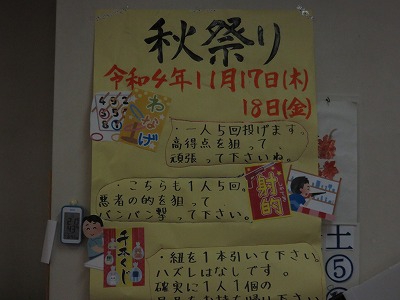 秋祭り
令和4年11月17日(木)
18日(金)
わなげ
・一人5回投げます。
高得点を狙って、
頑張って下さいね。
・こちらも1人5回。
悪者の的を狙って
バンバン撃って下さい。
射的
千本くじ
・紐を1本引いて下さい。
ハズレはなしです。
確実に1人1個の
土
⑤